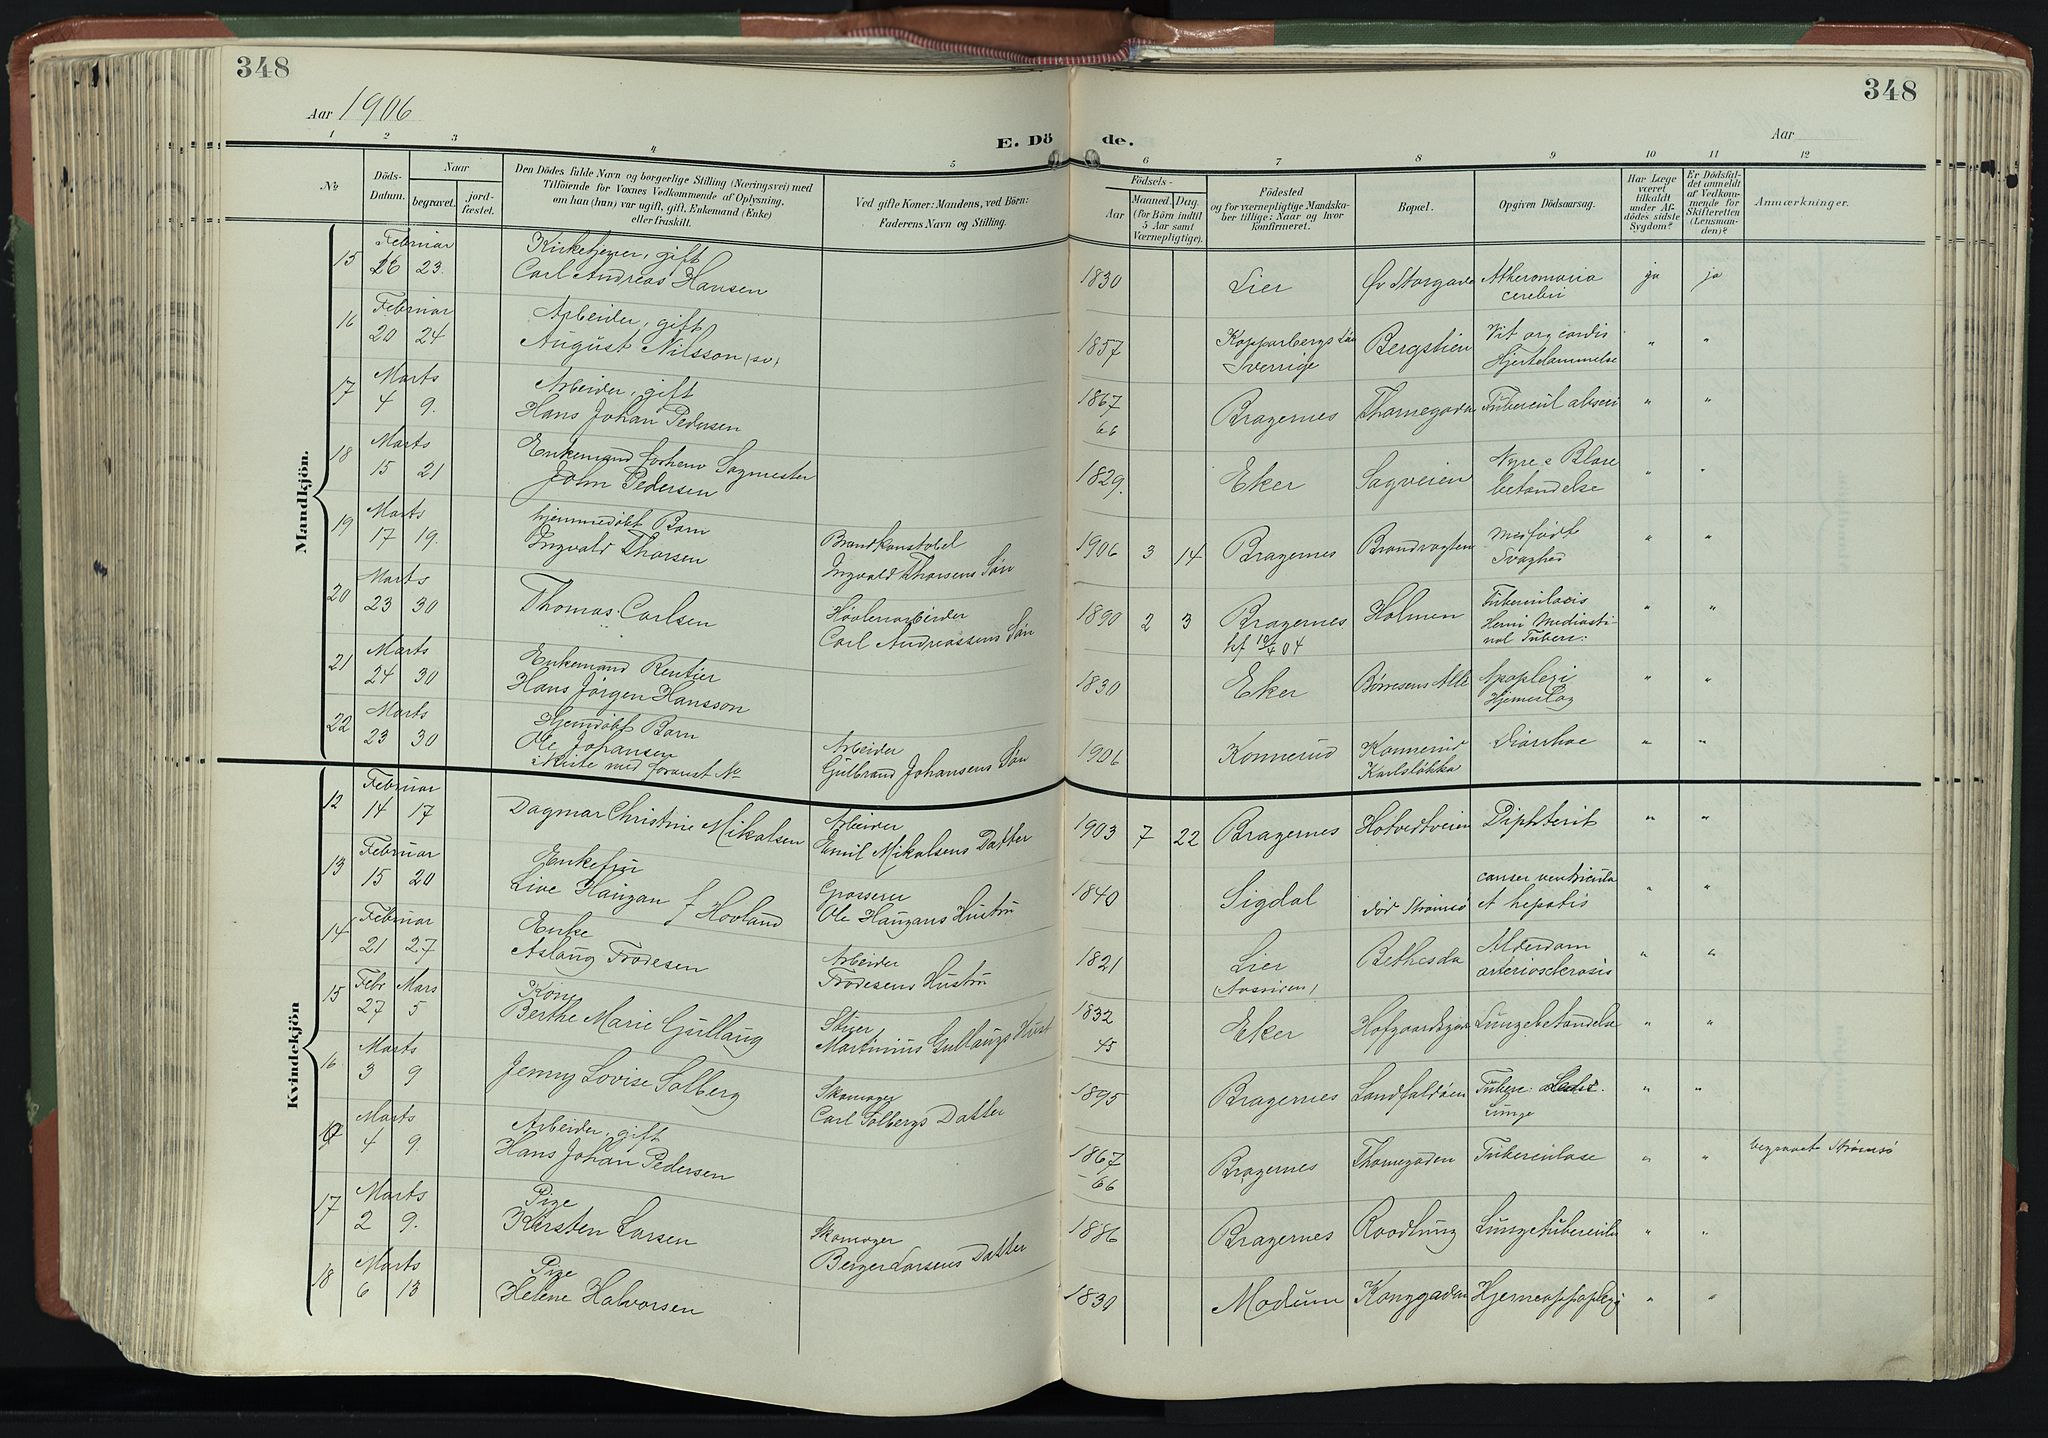 348
348
Aar 1906
Aar
E. Döde.
1 2 3 4 5 6 7 8 9 10 11 12
No
Döds-Datum.
Naar
begravet.
jord-fæstet.
Den Dödes fulde Navn og borgerlige Stilling (Næringsvei) med
Tilföiende for Voxnes Vedkommende af Oplysning,
om han (hun) var ugift, gift, Enkemand (Enke)
eller fraskilt.
Ved gifte Koner: Mandens, ved Börn:
Faderens Navn og Stilling.
Födsels-
Aar
Maaned. Dag.
(for Börn indtil
5 Aar samt
Værnepligtige).
Födested
og for værnepligtige Mandska-
ber tillige: Naar og hvor
konfirmeret.
Bopæl.
Opgiven Dödsaarsag.
Har Læge
været
tilkaldt
under Af-
dödes sidste
Sygdom?
Er Dödsfal-
det anmeldt
af Vedkom-
mende for
Skifteretten
(Lensman-
den)?
Anmærkninger.
Mandkjön.
15 Februar Kirketjener, gift
16 23. Carl Andreas Hansen 1830 Lier Øv Storgade Atheromaria cerebri ja ja
16 Februar Arbeider, gift
20 24 August Nilsson (sv) 1857 Kopparbergs Län Sverrige Bergstien Vit org cordis Hjertelammelse " "
17 Marts Arbeider, gift
4 9. Hans Johan Pedersen 1867 66 Bragernes Thornegaden Tubercul " "
18 Marts Enkemand forhenv Sagmester
15 21 John Pedersen 1829. Eker Sagveien Nyre & Blære betændelse " "
19 Marts hjemmedøbt Barn Brandkonstabel
17 19. Ingvald Thorsen Ingvald Thorsens Søn 1906 3 14 Bragernes Brandvagten Medfødt Svaghed " "
20 Marts Høvleriarbeider
23 30 Thomas Carlsen Carl Andreassens Søn 1890 2 3 Bragernes kf 10/4 04 Holmen Tuberculosis Mediastinal Tuberc: " "
21 Marts Enkemand Rentier
24 30 Hans Jørgen Hansson 1830 Eker Børresens Alle Apoplexi Hjerneslag " "
22 Marts Hjemdøbt Barn Arbeider
23 30 Ole Johansen Gulbrand Johansens Søn 1906 Konnerud Konnerud Karlsløkka Diarrhoe " "
i Kiste med foranst No
Kvindekjön
12 Februar Arbeider
14 17 Dagmar Christine Mikalsen Emil Mikalsens Datter 1903 7 22 Bragernes Hotvedtveien Diphterit " "
13 Februar Enkefru Grosserer
15 20 Live Haugan f Hovland Ole Haugans Hustru 1840 Sigdal død Strømsø canser ventricula et hepatis " "
14 Februar Enke Arbeider
21 27 Aslaug Frodesen Frodesens Hustru 1821 Lier Bethesda Alderdom arteriosclerosis " "
15 Febr Mars Kone Stuer
27 5 Berthe Marie Gullaug Martinius Gullaugs Hust 1832 45 Eker Lungebetændelse " "
16 Marts Skomager
3 9 Jenny Lovise Solberg Carl Solbergs Datter 1895 Bragernes Landfaldøen Tuberc. Lunge " "
Marts Arbeider, gift
4 9. Hans Johan Pedersen 1867 -66 Bragernes Thornegaden Tuberculose " " begravet Strømsø
17 Marts Pige Skomager
2 9. Kirsten Larsen Berger Larsens Datter 1886 Bragernes Raadlung Lungetubercul " "
18 Marts Pige
6 13 Helene Halvorsen 1830 Modum Konggaden Hjerneappoplexi " "